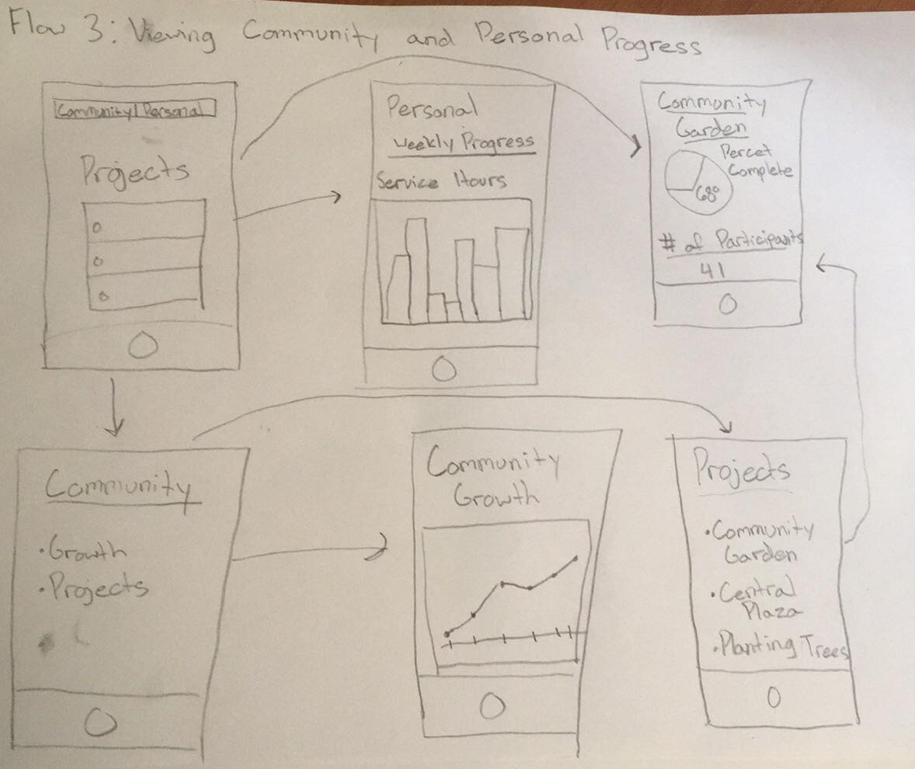 Flow 3: Viewing Community and Personal Progress
Community | Personal
Projects
Personal
Weekly Progress
Service Hours
Community
Garden
Percet
Complete
68%
# of Participants
41
Community
• Growth
• Projects
Community
Growth
Projects
• Community
Garden
• Central
Plaza
• Planting Trees